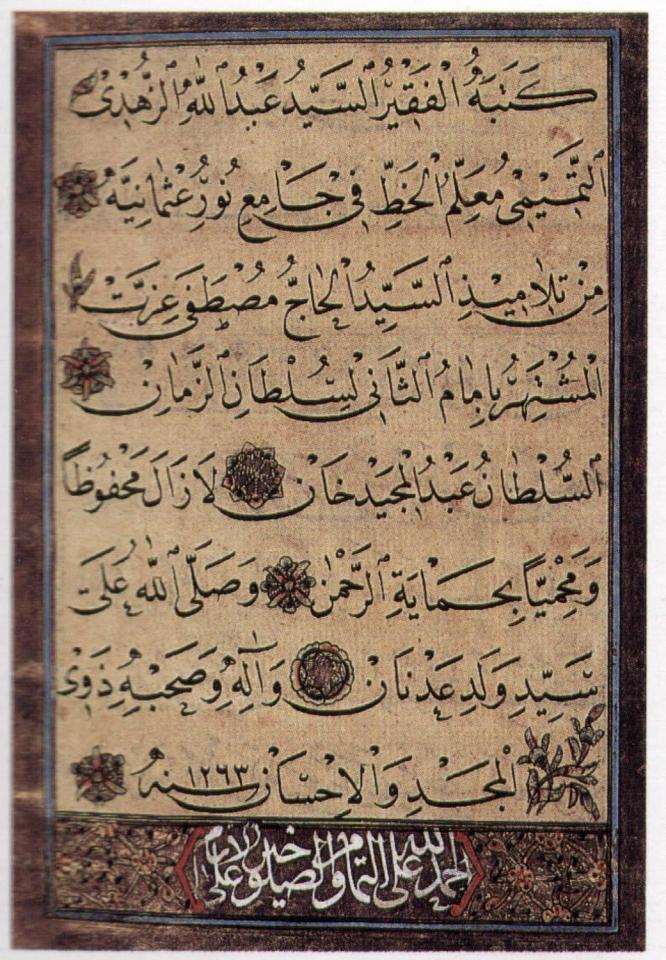 كَتَبَهُ الْفَقِيرُ السَّيِّدُ عَبْدُ اللّٰهِ الزُّهْدِىُّ
التَّمِيمِىُّ مُعَلِّمُ الْخَطِّ فِى جَامِعِ نُورِعُثْمَانِيَّهْ
مِنْ تَلَامِيذِ السَّيِّدِ الْحَاجِّ مُصْطَفَى عِزَّتْ
الْمُشْتَهِرُ بِامَامُ الثَّانِى لِسُّلْطَانِ الزَّمَانِ
السُّلْطَانُ عَبْدُ الْمَجِيدْ خَانْ لَا زَالَ مَحْفُوظًا
وَمَحْمِيًّا بِحِمَايَةِ الرَّحْمٰنِ وَصَلَّى اللّٰهُ عَلَى
سَيِّدِ وَلَدِ عَدْنَانَ وَآلِهِ وَصَحْبِهِ ذَوِى
الْمَجْدِ وَالْاِحْسَانِ سنه ١٢٦٣
الحمد لله على التمام والصلوة على خير الانام